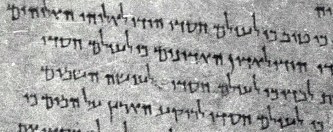 כי טוב כי לעולם חסדו הודו לאלוהי האלוהים
הודו לאדון האדונים כי לעולם חסדו
לבדו כי לעולם חסדו לעושה השמים
כי לעולם חסדו לרוקע הארץ על המים כי